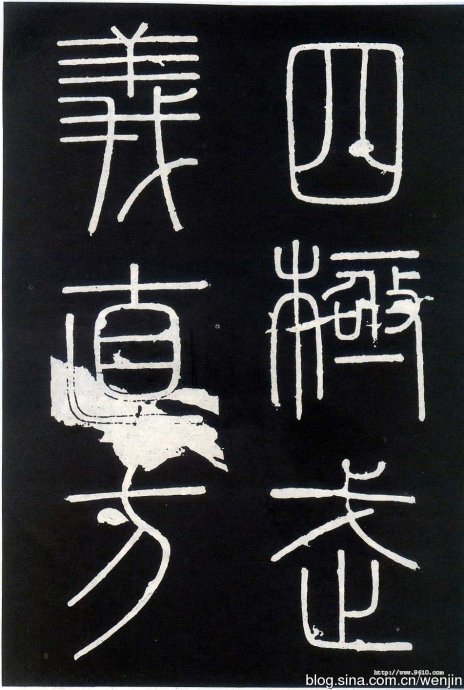 四極武
義直方
http://www.9610.com
blog.sina.com.cn/wenjin